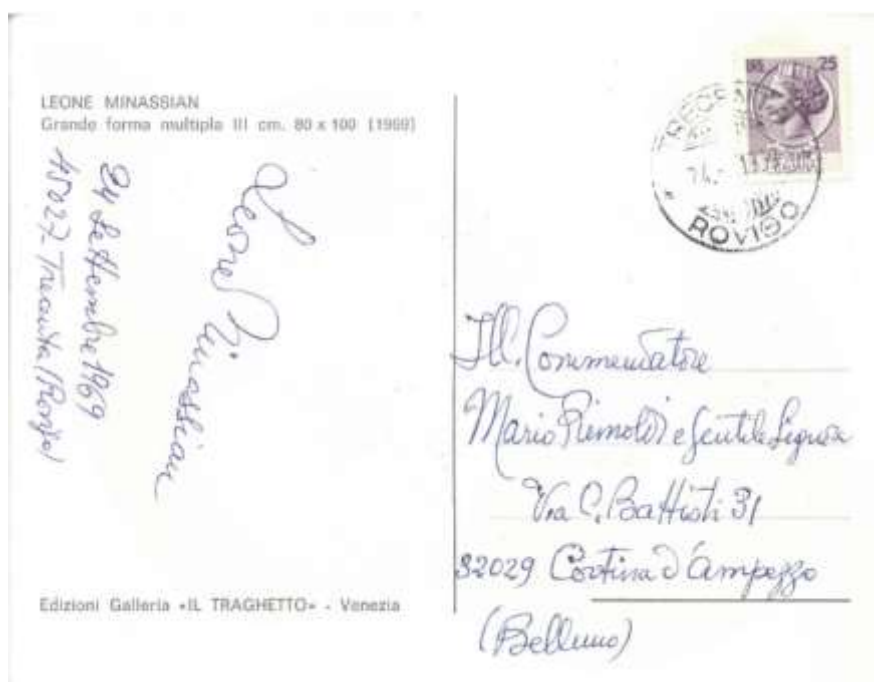 LEONE MINASSIAN
Grande forma multipla III cm. 80 x 100 (1969)
24 Settembre 1969
45027 - Trecenta (Rovigo)
Leone Minassian
Edizioni Galleria «IL TRAGHETTO» - Venezia
25
ROVIGO
Ill. Commendatore
Mario Rimoldi e gentile Signora
Via C. Battisti 31
32029 Cortina d'Ampezzo
(Belluno)